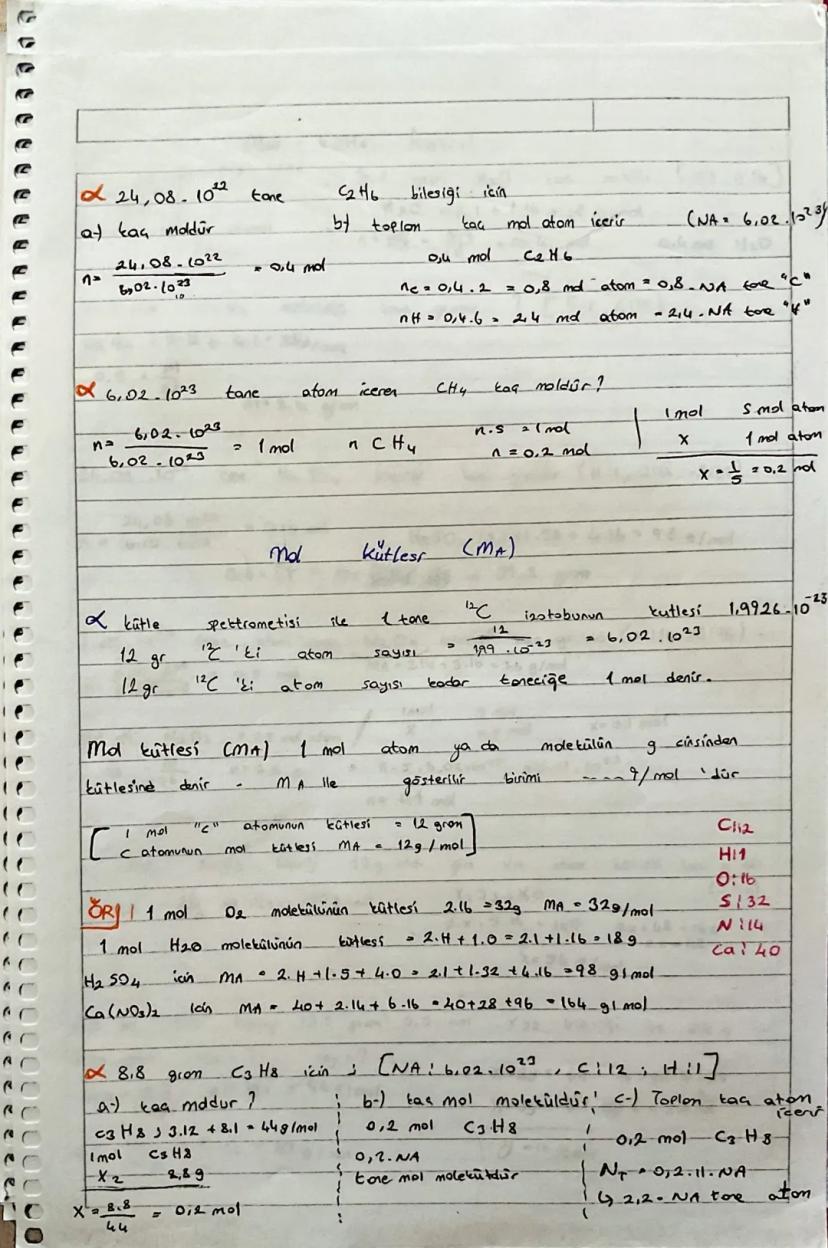 α 24,08.10²² tane C₂H₆ bileşiği için
a-) kaç moldür b-) toplam kaç mol atom içerir (NA = 6,02.10²³)
n= 24,08.10²² / 6,02.10²³ = 0,4 mol
0,4 mol C₂H₆
nc = 0,4.2 = 0,8 mol atom = 0,8.NA tane "C"
nH = 0,4.6 = 2,4 mol atom = 2,4.NA tane "H"
α 6,02.10²³ tane atom içeren CH₄ kaç moldür?
n= 6,02.10²³ / 6,02.10²³ = 1 mol n CH₄
n.5 = 1 mol
n = 0,2 mol
1 mol 5 mol atom
x 1 mol atom
x = 1/5 = 0,2 mol
Mol kütlesi (MA)
α kütle spektrometisi ile 1 tane ¹²C izotobunun kutlesi 1,9926.10⁻²³
12 gr ¹²C 'ki atom sayısı = 12 / 1,99.10⁻²³ = 6,02.10²³
12 gr ¹²C 'ki atom sayısı kadar taneciğe 1 mol denir.
Mol kütlesi (MA) 1 mol atom ya da molekülün g cinsinden
kütlesine denir. MA ile gösterilir birimi ---- g/mol 'dür
[1 mol "C" atomunun kütlesi = 12 gram
C atomunun mol kütlesi MA = 12g/mol]
C:12
H:1
O:16
S:32
N:14
Ca:40
ÖR/ 1 mol O₂ molekülünün kütlesi 2.16 = 32g MA = 32g/mol
1 mol H2O molekülünün kütlesi = 2.H + 1.O = 2.1 + 1.16 = 18g
H₂SO₄ için MA = 2.H + 1.S + 4.O = 2.1 + 1.32 + 4.16 = 98 g/mol
Ca(NO₃)₂ için MA = 40 + 2.14 + 6.16 = 40+28+96 = 164 g/mol
α 8,8 gram C₃H₈ için ; [NA: 6,02.10²³, C:12, H:1]
a-) kaç moldur?
C₃H₈ ; 3.12 + 8.1 = 44g/mol
1mol C₃H₈
x₂ 8,8g
x = 8.8 / 44 = 0,2 mol
b-) kaç mol moleküldür
0,2 mol C₃H₈
0,2.NA
tane mol moleküldür
c-) Toplan kaç atom
içerir
0,2 mol C₃H₈
NT = 0,2.11.NA
↳ 2,2.NA tane atom